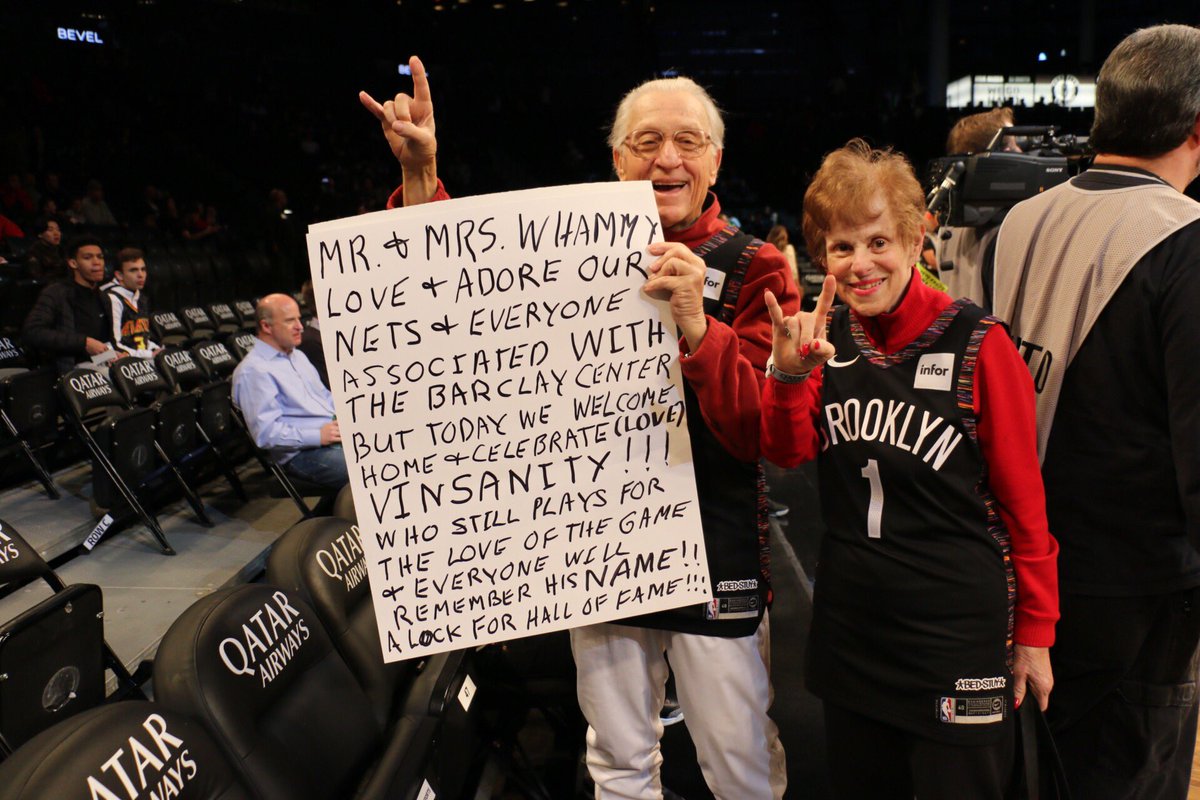 BEVEL
MR. & MRS. WHAMMY
LOVE & ADORE OUR
NETS & EVERYONE
ASSOCIATED WITH
THE BARCLAY CENTER
BUT TODAY WE WELCOME
HOME & CELEBRATE (LOVE)
VINSANITY!!!
WHO STILL PLAYS FOR
THE LOVE OF THE GAME
& EVERYONE WILL
REMEMBER HIS NAME!!
A LOCK FOR HALL OF FAME!!!
infor
infor
BROOKLYN
1
BED-STUY
BED-STUY
SONY
ROW C
QATAR
AIRWAYS
QATAR
AIRWAYS
QATAR
AIRWAYS
47